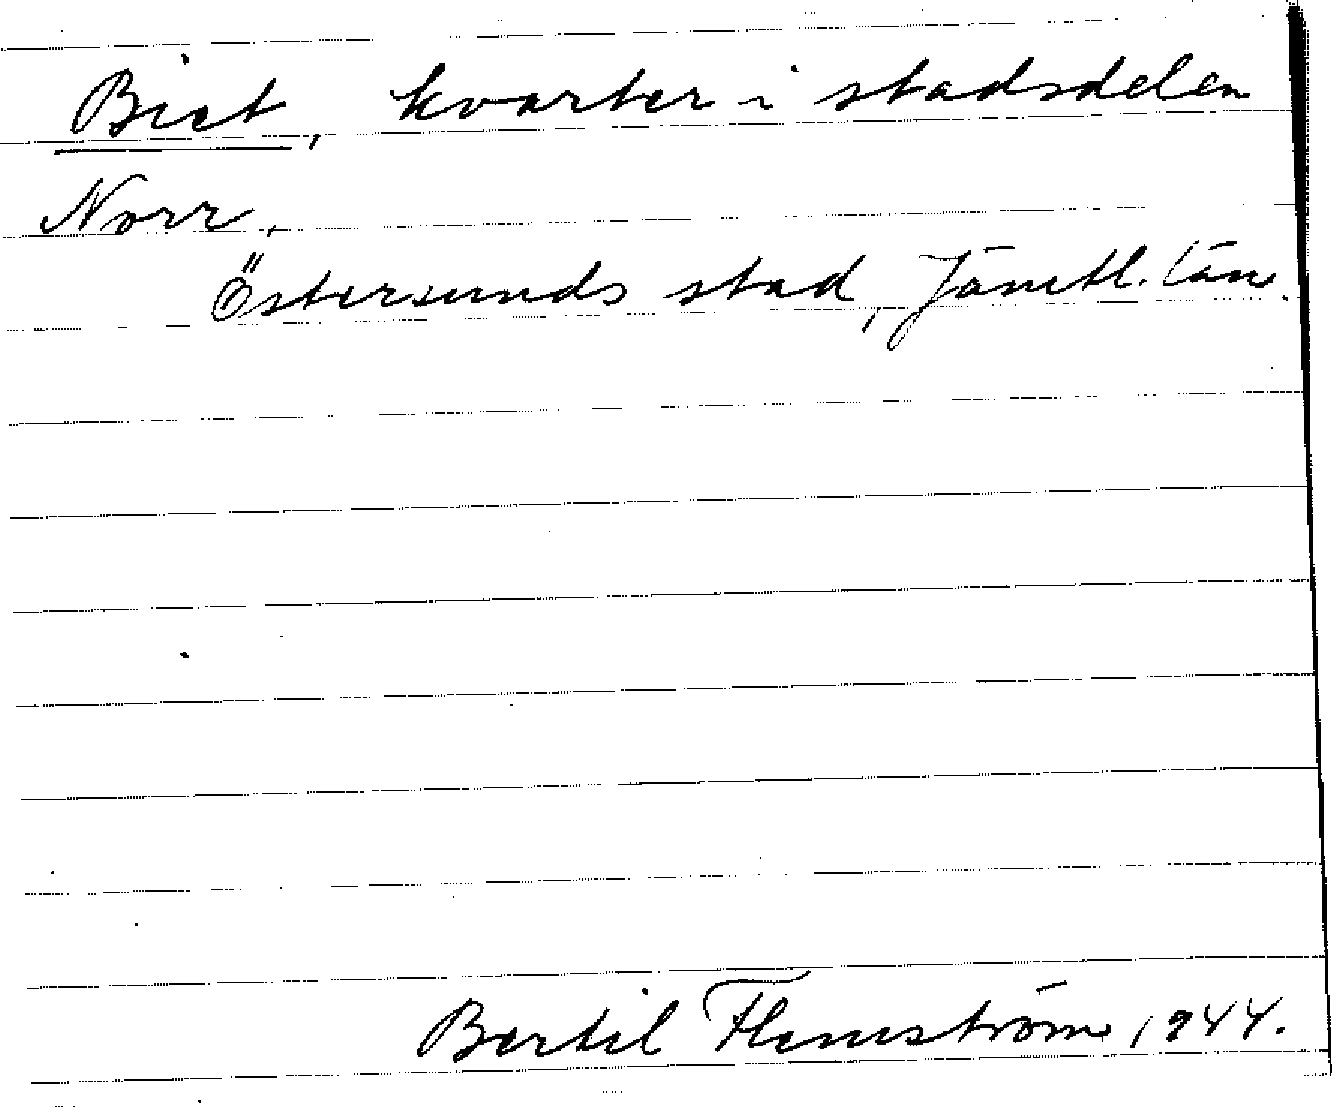 Biet, kvarter i stadsdelen
Norr,
Östersunds stad, Jämtl. län.
Bertil Flemström, 1944.